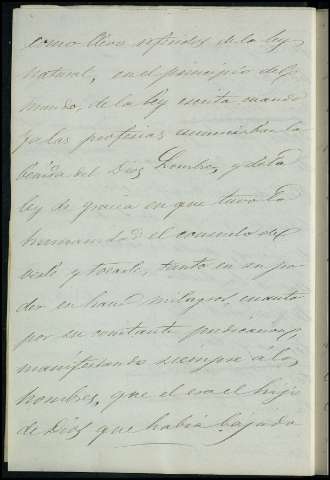 como Dios ofendido de la ley
natural, en el principio del
mundo, de la ley escrita cuando
ya las profecias anunciaban la
benida del Dios Hombre, y de la
ley de gracia en que tuvo la
humanidad el consuelo de
verlo y tocarlo, tanto en su po
der en hacer milagros, cuanto
por su constante predicacion,
manifestando siempre á los
hombres, que el era el hijo
de Dios que habia bajado